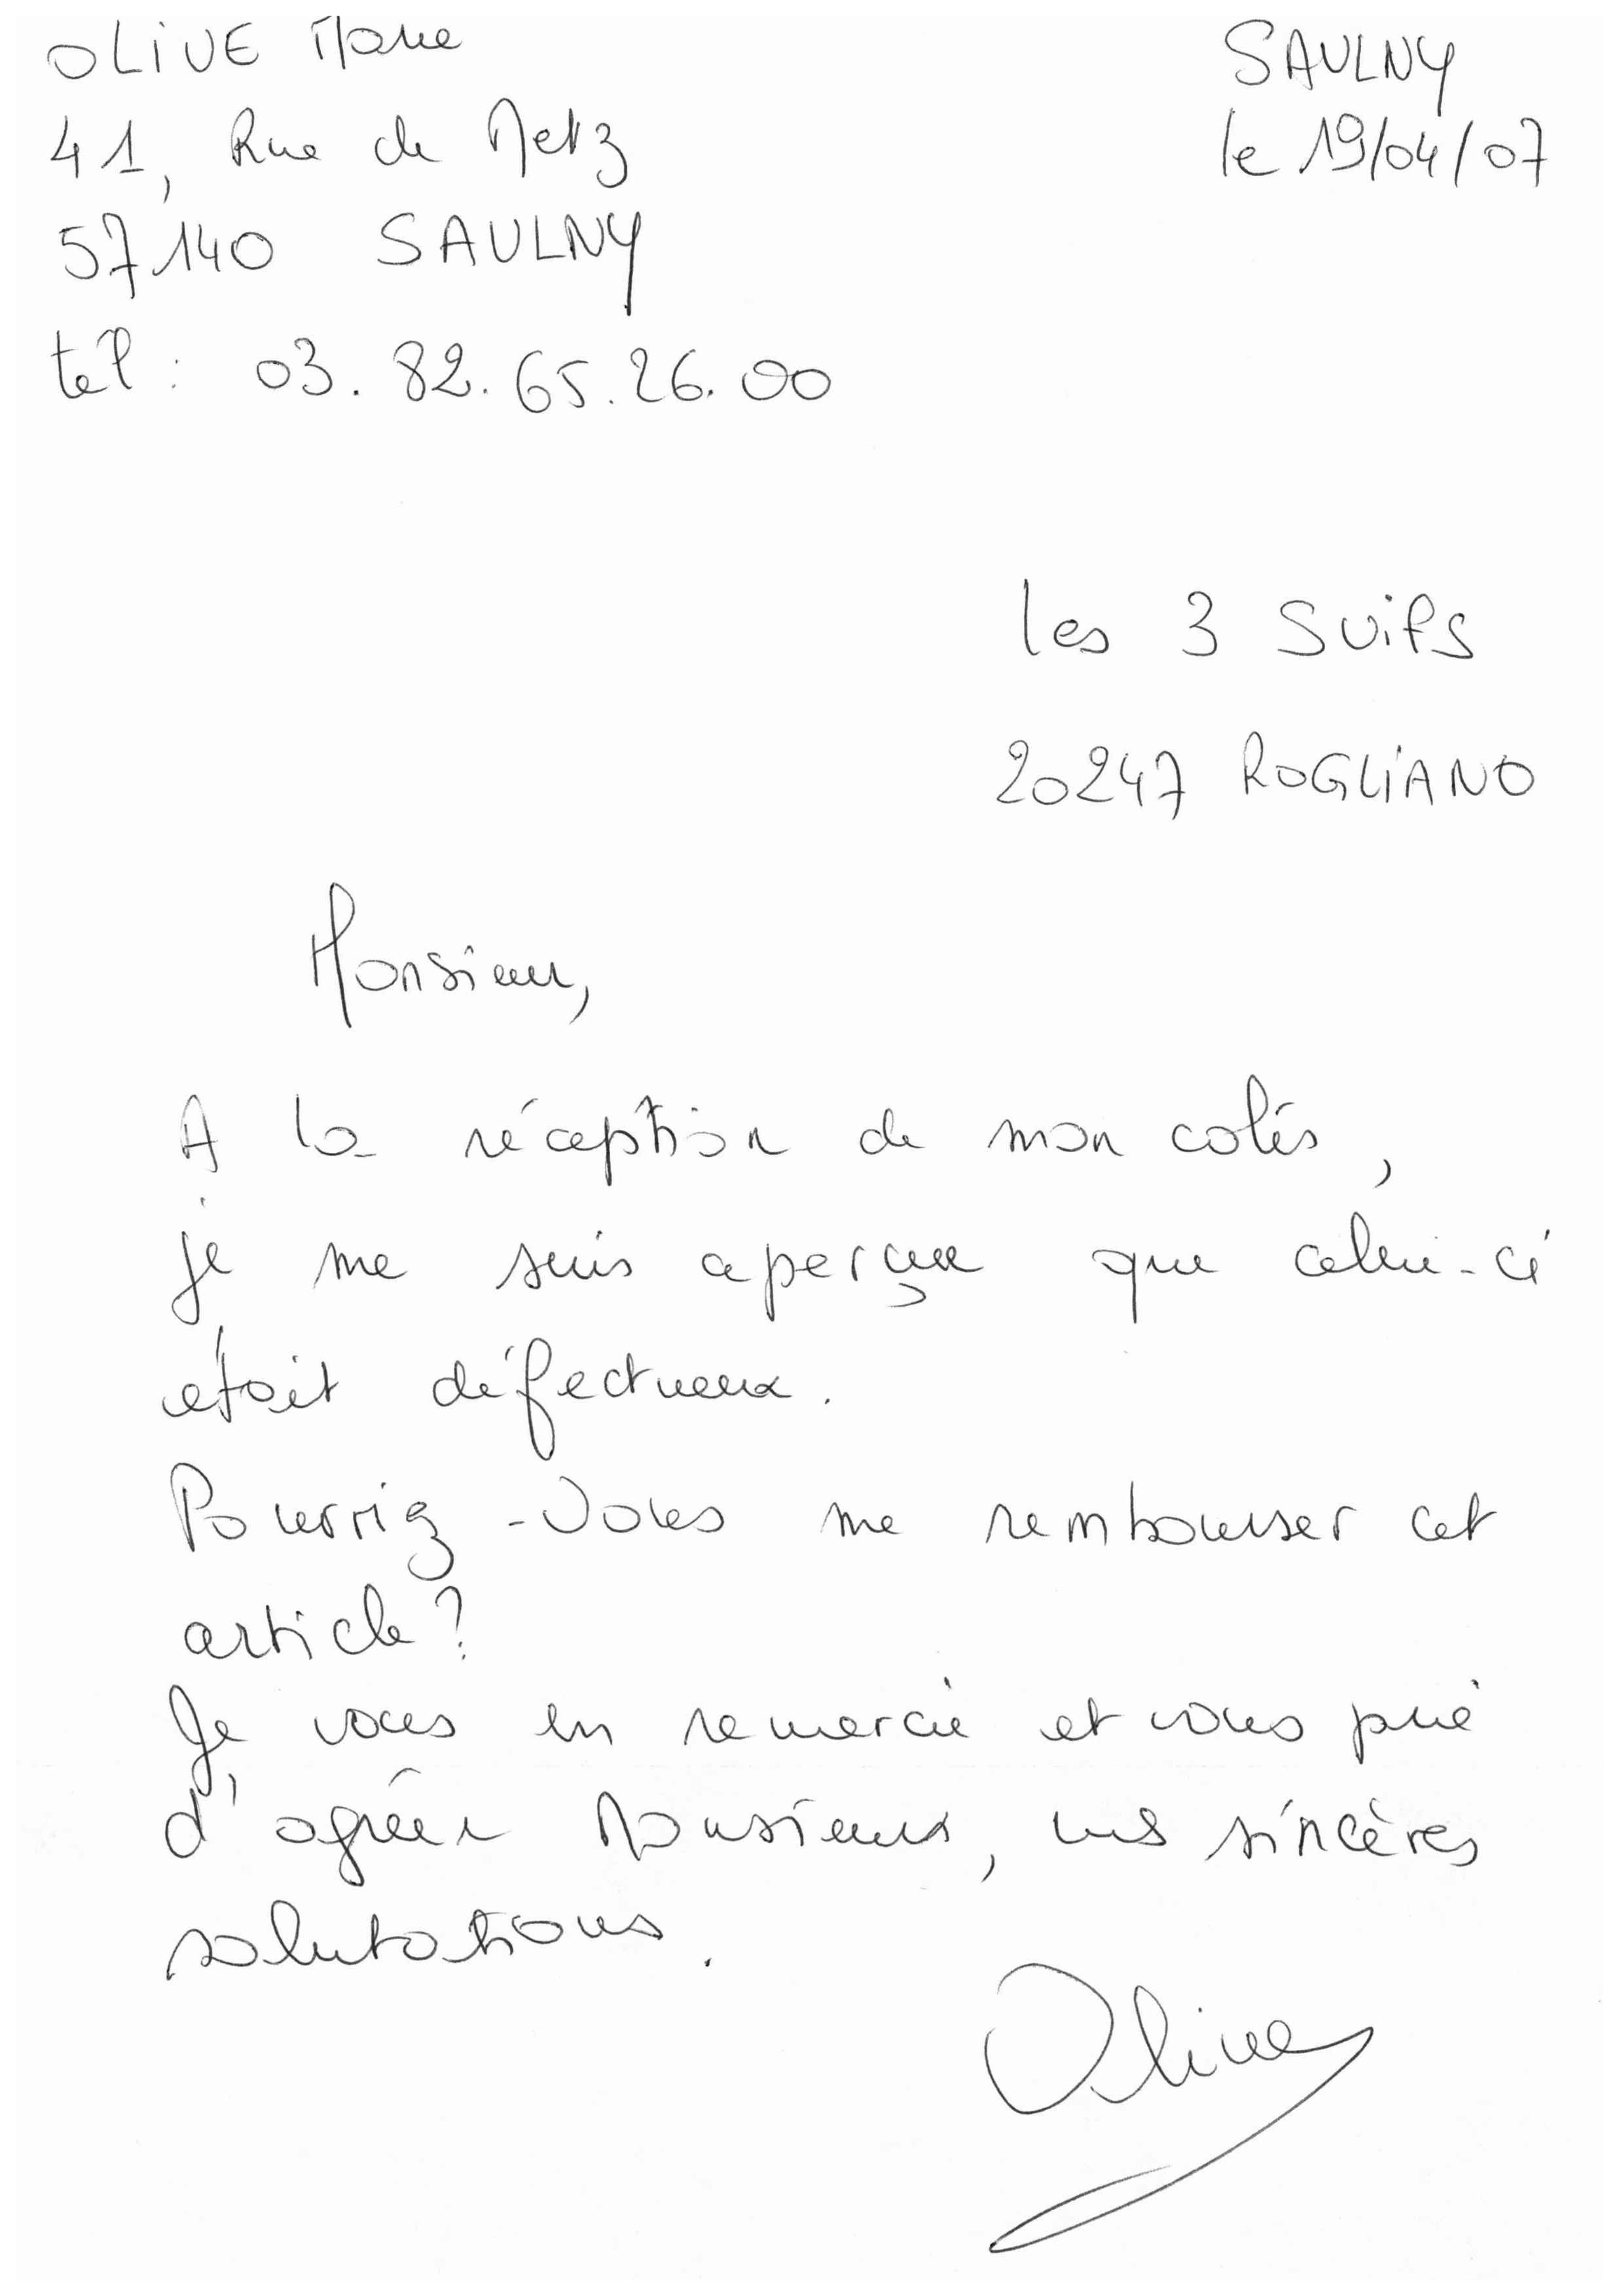 OLIVE Marie
SAULNY
41, Rue de Metz
le 19/04/07
57140 SAULNY
tél : 03.82.65.26.00
les 3 Suifs
20247 ROGLIANO
Monsieur,
A la réception de mon colis,
je me suis aperçue que celui-ci
était défectueux.
Pourriez-vous me rembourser cet
article?
Je vous en remercie et vous prie
d'agréer Monsieur, mes sincères
salutations.
Olive